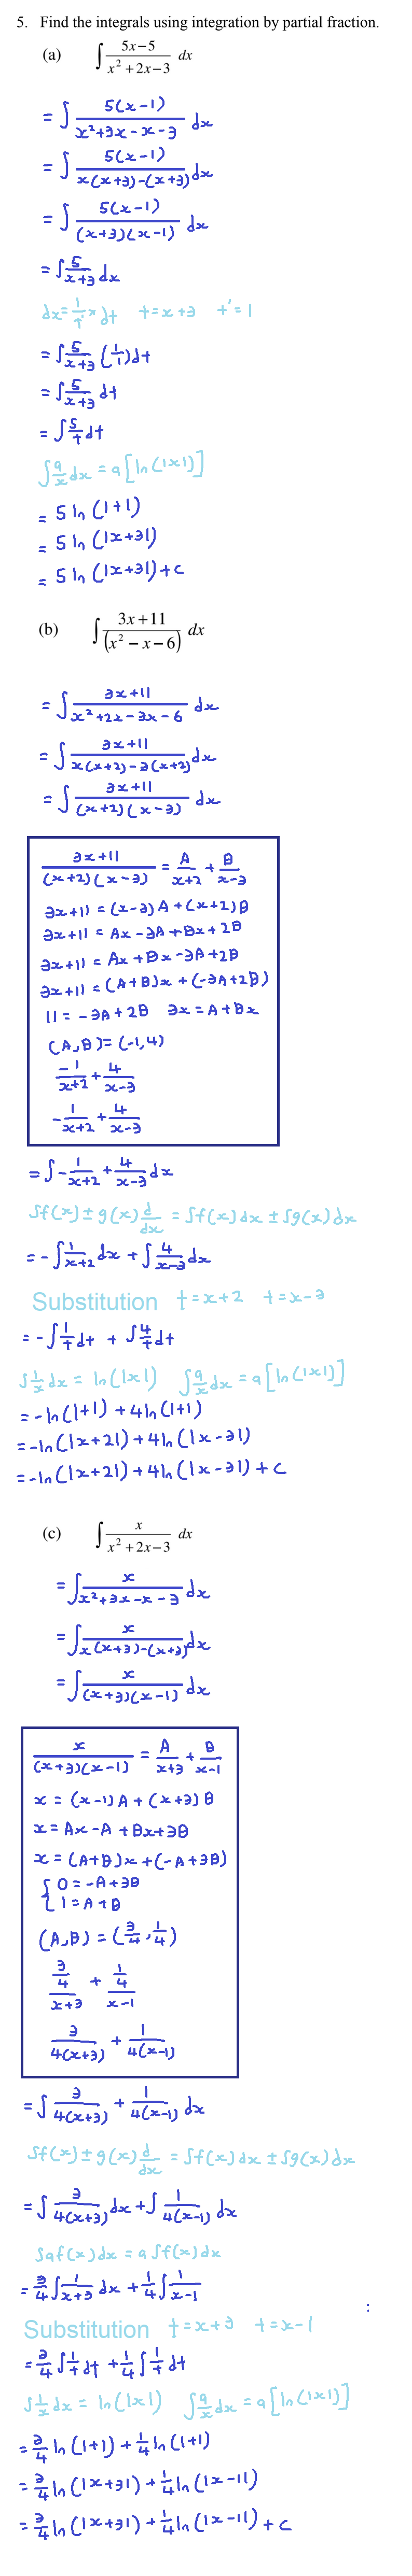 5. Find the integrals using integration by partial fraction.
(a) ∫ (5x−5)/(x²+2x−3) dx
= ∫ 5(x-1)/(x²+3x-x-3) dx
= ∫ 5(x-1)/(x(x+3)-(x+3)) dx
= ∫ 5(x-1)/((x+3)(x-1)) dx
= ∫ 5/(x+3) dx
dx = 1/t' × dt t = x+3 t' = 1
= ∫ 5/(x+3) (1/1) dt
= ∫ 5/(x+3) dt
= ∫ 5/t dt
∫ a/x dx = a[ln(|x|)]
= 5 ln (|t|)
= 5 ln (|x+3|)
= 5 ln (|x+3|) + c
(b) ∫ (3x+11)/(x²−x−6) dx
= ∫ (3x+11)/(x²+2x-3x-6) dx
= ∫ (3x+11)/(x(x+2)-3(x+2)) dx
= ∫ (3x+11)/((x+2)(x-3)) dx
(3x+11)/((x+2)(x-3)) = A/(x+2) + B/(x-3)
3x+11 = (x-3)A + (x+2)B
3x+11 = Ax - 3A + Bx + 2B
3x+11 = Ax + Bx - 3A + 2B
3x+11 = (A+B)x + (-3A+2B)
11 = -3A + 2B 3x = A + Bx
(A,B) = (-1,4)
-1/(x+2) + 4/(x-3)
- 1/(x+2) + 4/(x-3)
= ∫ - 1/(x+2) + 4/(x-3) dx
∫f(x) ± g(x) d/dx = ∫f(x) dx ± ∫g(x) dx
= - ∫ 1/(x+2) dx + ∫ 4/(x-3) dx
Substitution t = x+2 t = x-3
= - ∫ 1/t dt + ∫ 4/t dt
∫ 1/x dx = ln(|x|) ∫ a/x dx = a[ln(|x|)]
= -ln(|t|) + 4ln(|t|)
= -ln(|x+2|) + 4ln(|x-3|)
= -ln(|x+2|) + 4ln(|x-3|) + c
(c) ∫ x/(x²+2x−3) dx
= ∫ x/(x²+3x-x-3) dx
= ∫ x/(x(x+3)-(x+3)) dx
= ∫ x/((x+3)(x-1)) dx
x/((x+3)(x-1)) = A/(x+3) + B/(x-1)
x = (x-1)A + (x+3)B
x = Ax - A + Bx + 3B
x = (A+B)x + (-A+3B)
{ 0 = -A + 3B
1 = A + B
(A,B) = (3/4, 1/4)
(3/4)/(x+3) + (1/4)/(x-1)
3/(4(x+3)) + 1/(4(x-1))
= ∫ 3/(4(x+3)) + 1/(4(x-1)) dx
∫f(x) ± g(x) d/dx = ∫f(x) dx ± ∫g(x) dx
= ∫ 3/(4(x+3)) dx + ∫ 1/(4(x-1)) dx
∫af(x) dx = a∫f(x) dx
= 3/4 ∫ 1/(x+3) dx + 1/4 ∫ 1/(x-1)
:
Substitution t = x+3 t = x-1
= 3/4 ∫ 1/t dt + 1/4 ∫ 1/t dt
∫ 1/x dx = ln(|x|) ∫ a/x dx = a[ln(|x|)]
= 3/4 ln(|t|) + 1/4 ln(|t|)
= 3/4 ln(|x+3|) + 1/4 ln(|x-1|)
= 3/4 ln(|x+3|) + 1/4 ln(|x-1|) + c